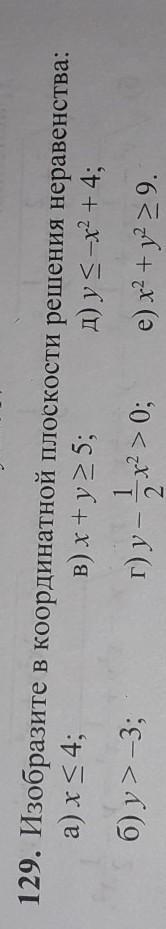 129. Изобразите в координатной плоскости решения неравенства:
а) x ≤ 4; в) x + y ≥ 5; д) y ≤ −x² + 4;
б) y > −3; г) y − 1/2 x² > 0; е) x² + y² ≥ 9.